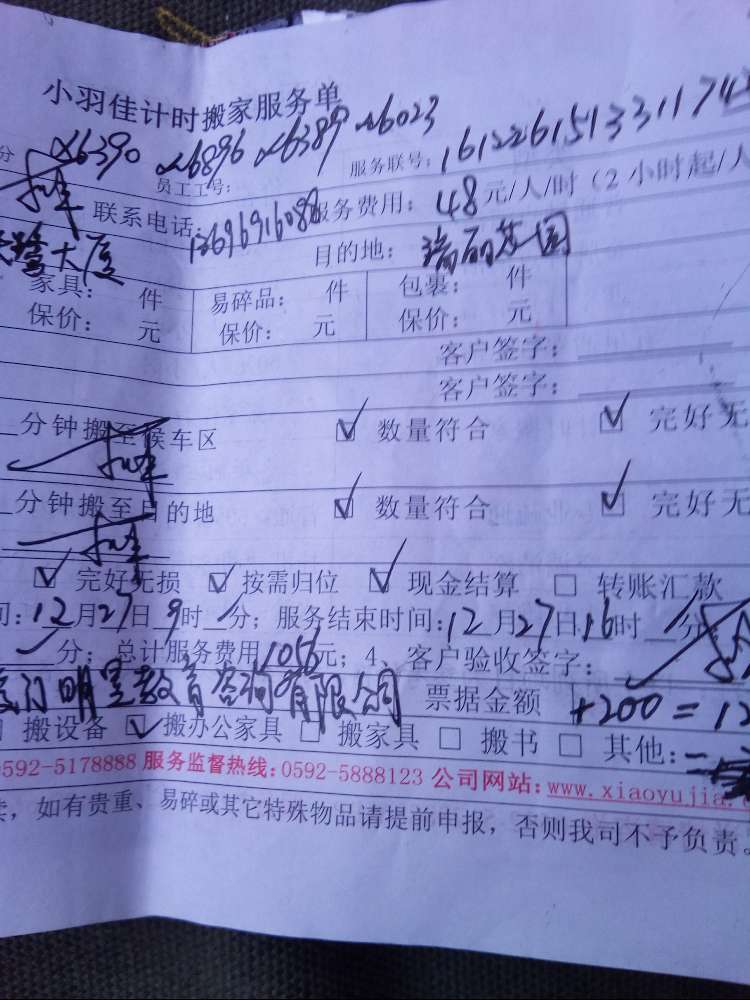 小羽佳计时搬家服务单
分 26390 26896 26389 26023
员工工号: 服务联号: 1612261513311743
联系电话: 服务费用: 48元/人/时（2小时起/人
鹭大厦 目的地: 瑞丽花园
家具: 件 易碎品: 件 包裹: 件
保价: 元 保价: 元 保价: 元
客户签字:
客户签字:
分钟搬至候车区 ☑ 数量符合 ☑ 完好无
分钟搬至目的地 ☑ 数量符合 ☑ 完好无
☑ 完好无损 ☑ 按需归位 ☑ 现金结算 □ 转账汇款
间: 12月27日9时 分; 服务结束时间: 12月27日16时 分
分; 总计服务费用1056元; 4、客户验收签字:
厦门明星教育咨询有限公司 票据金额 +200=12
搬设备 ☑ 搬办公家具 □ 搬家具 □ 搬书 □ 其他:
0592-5178888 服务监督热线:0592-5888123 公司网站:www.xiaoyujia.
读，如有贵重、易碎或其它特殊物品请提前申报，否则我司不予负责。